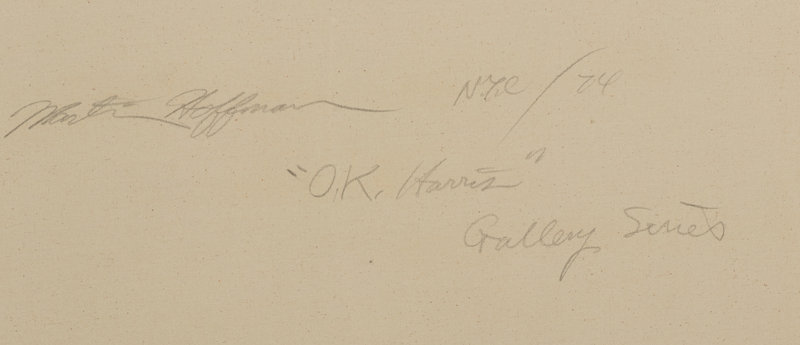 Martin Hoffman N.Y.C / 74
"O.K. Harris"
Gallery Series